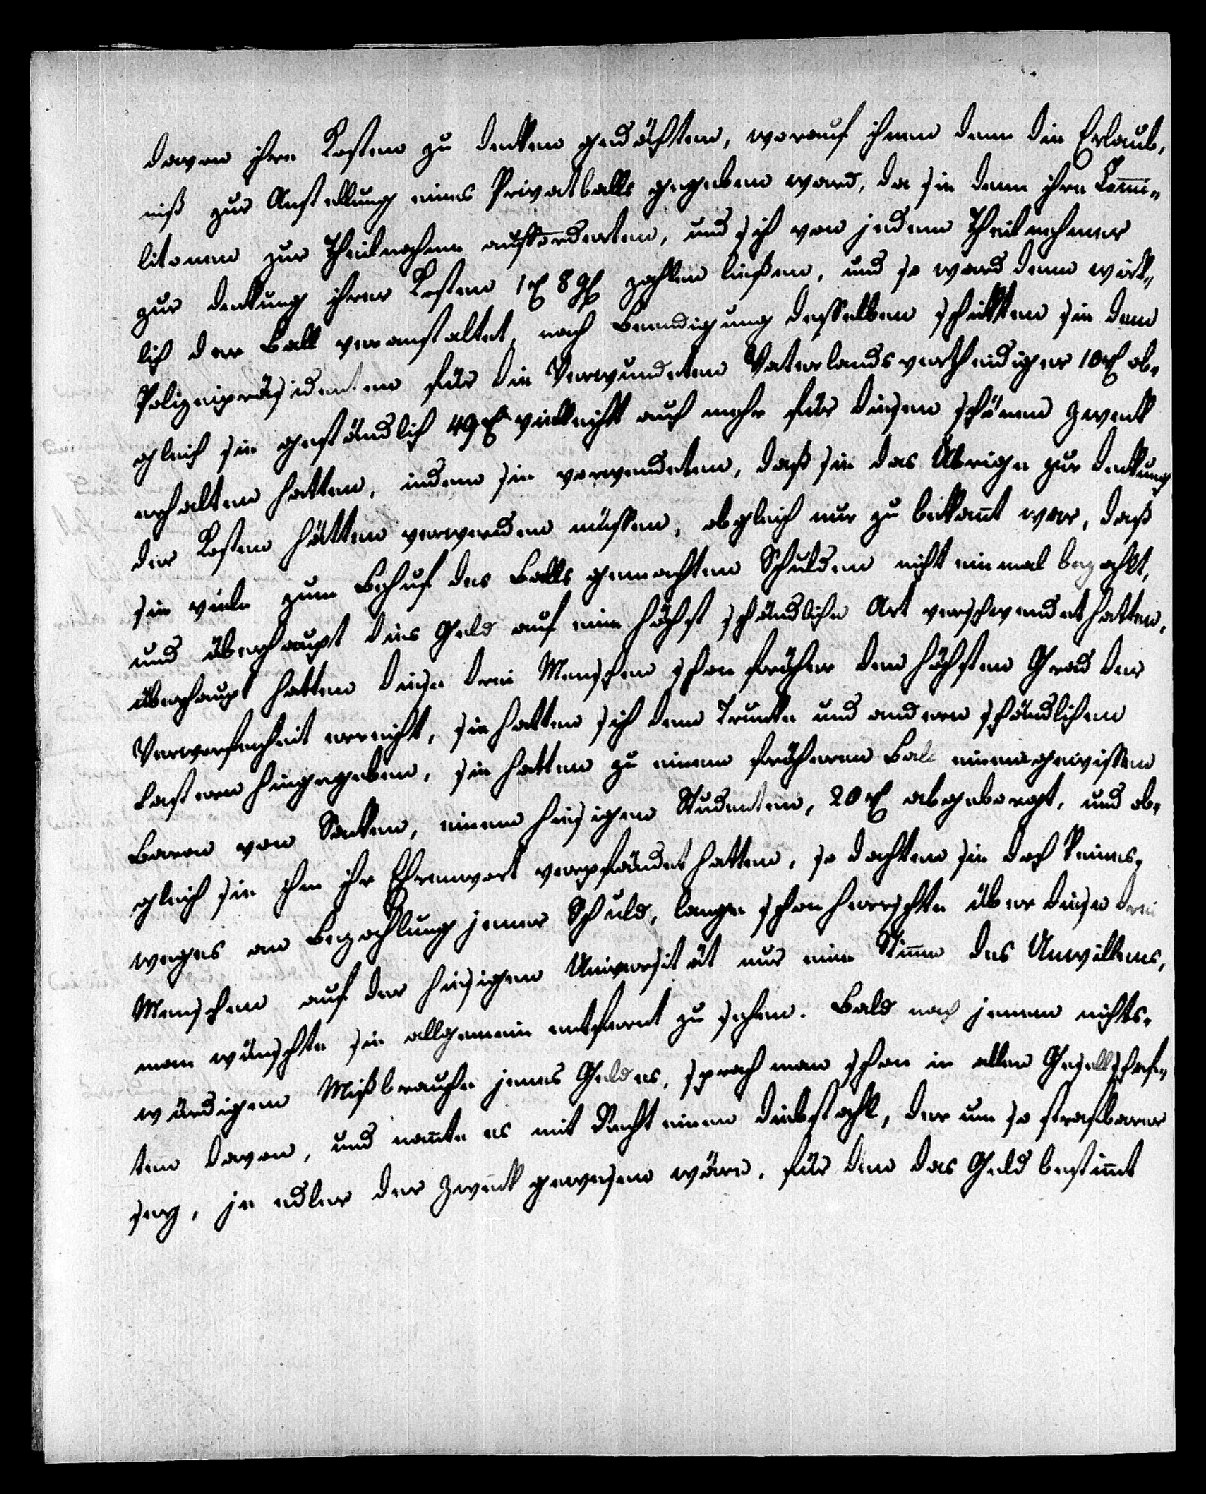 davon ihre Kosten zu decken gedächten, worauf ihnen denn die Erlaub-
niß zur Anstellung eines Privatballs gegeben ward, da sie denn ihre Com̅i-
litonen zur Theilnahme aufforderten, und sich von jedem Theilnehmer
zur deckung ihrer Kosten 1 rℓ 8 gℓ zahlen ließen, und so ward denn wirk-
lich der Ball veranstaltet, nach Beendigung desselben schickten sie dem
Polizeipräsidenten für die Verwundeten Vaterlandsvertheidiger 10 rℓ ob-
gleich sie geständlich 49 rℓ vielleicht auch mehr für diesen schönen Zweck
erhalten hatten, indem sie vorwendeten, daß sie das Übrige zur deckung
der Kosten hätten verwenden müssen, obgleich nur zu bekan̅t war, daß
sie viele zum Behuf des Balls gemachten Schulden nicht einmal bezahlt,
und überhaupt dies Geld auf eine höchst schändliche Art verschwendet hatten,
überhaupt hatten diese drei Menschen schon früher den höchsten Grad der
Verworfenheit erreicht, sie hatten sich dem Trunke und andern schändlichen
Lastern hingegeben, sie hatten zu einem früheren Ball einem gewissen
Baron von Sacken, einem hiesigen Studenten, 20 rℓ abgeborgt, und ob-
gleich sie ihm ihr Ehrenwort verpfändet hatten, so dachten sie doch keines-
weges an Bezahlung jener Schuld, lange schon herrschte über diese drei
Menschen auf der hiesigen Universität nur eine Stim̅e des Unwillens,
man wünschte sie allgemein entfernt zu sehen. Bald nach jenem nichts-
würdigen Mißbrauche jenes Geldes, sprach man schon in allen Gesellschaf-
ten davon, und nan̅te es mit Recht einen diebstahl, der um so strafbarer
sey, je edler der Zweck gewesen wäre, für den das Geld bestim̅t